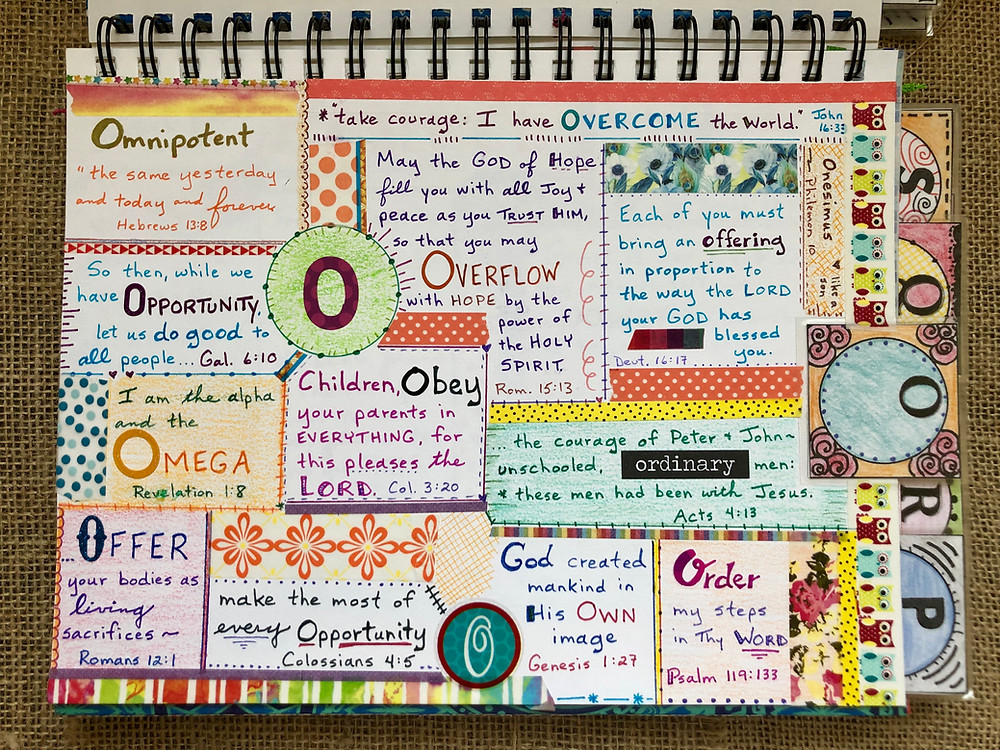 Omnipotent
"the same yesterday
and today and forever"
Hebrews 13:8
*"take courage: I have OVERCOME the world."
John
16:33
May the GOD of Hope
fill you with all Joy +
peace as you TRUST HIM,
so that you may
OVERFLOW
with HOPE by the
power of
the HOLY
SPIRIT.
Rom. 15:13
Each of you must
bring an offering
in proportion to
the way the LORD
your GOD has
blessed
you.
Deut. 16:17
Onesimus
~ Philemon 10
♥ like a
son
So then, while we
have OPPORTUNITY,
let us do good to
all people... Gal. 6:10
O
I am the alpha
and the
OMEGA
Revelation 1:8
Children, Obey
your parents in
EVERYTHING, for
this pleases the
LORD. Col. 3:20
... the courage of Peter + John~
unschooled, ordinary men:
* these men had been with Jesus.
Acts 4:13
...OFFER
your bodies as
living
sacrifices ~
Romans 12:1
make the most of
every Opportunity
Colossians 4:5
O
God created
mankind in
His OWN
image
Genesis 1:27
Order
my steps
in Thy WORD
Psalm 119:133
S
Q
O
R
P